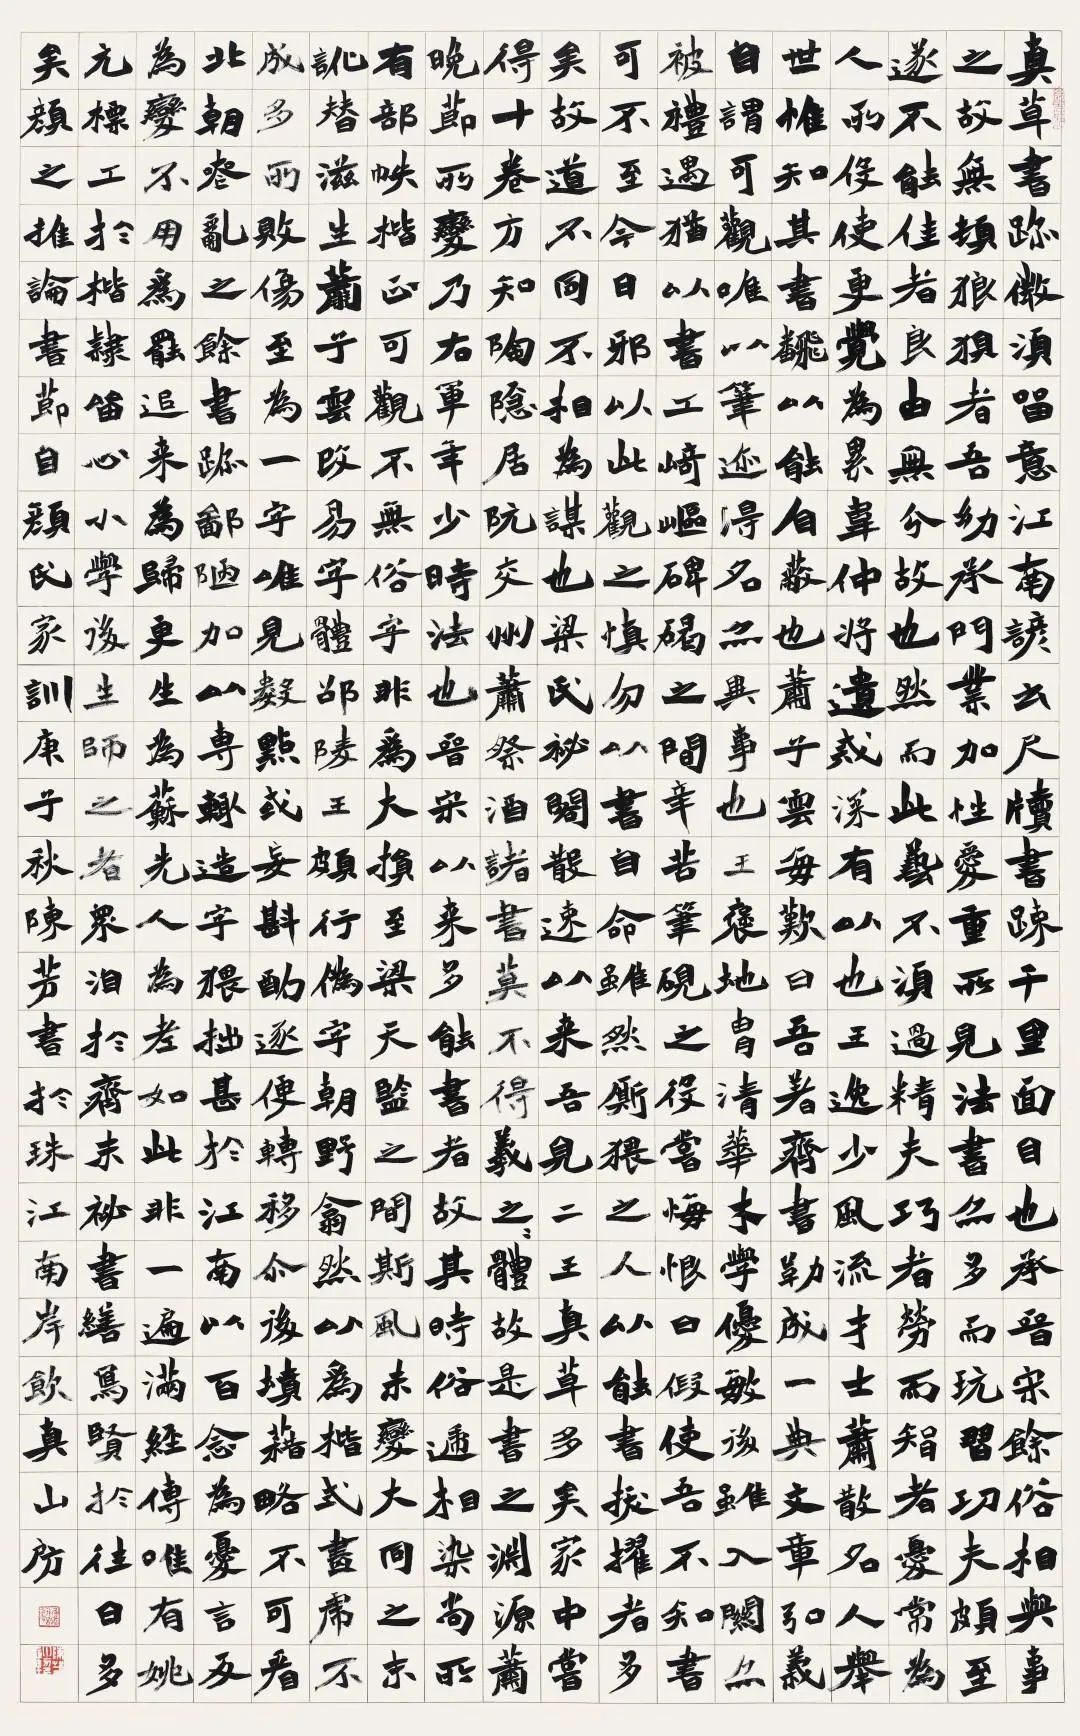 真草書跡微須留意江南諺云尺牘書疎千里面目也承晉宋餘俗相與事
之故無頓狼狽者吾幼承門業加性愛重所見法書亦多而玩習功夫頗至
遂不能佳者良由無分故也然而此藝不須過精夫巧者勞而智者憂常為
人而役使更覺為累韋仲將遺惑深有以也王逸少風流才士蕭散名人舉
世惟知其書翻以能自蔽也蕭子雲每歎曰吾著齊書勒成一典文章弘義
自謂可觀唯以筆迹得名亦異事也王褒地胄清華才學優敏後雖入關亦
被禮遇猶以書工崎嶇碑碣之間辛苦筆硯之役嘗悔恨曰假使吾不知書
可不至今日邪以此觀之慎勿以書自命雖然廝猥之人以能書拔擢者多
矣故道不同不相為謀也梁氏秘閣散速以來吾見二王真草多矣家中嘗
得十卷方知陶隱居阮交州蕭祭酒諸書莫不得羲之之體故是書之淵源蕭
晚節所變乃右軍年少時法也晉宋以來多能書者故其時俗遞相染尚所
有部帙楷正可觀不無俗字非為大損至梁天監之間斯風未變大同之末
訛替滋生蕭子雲改易字體邵陵王頗行偽字朝野翕然以為楷式畫虎不
成多所敗傷至為一字唯見數點或妄斟酌逐便轉移尒後墳藉略不可看
北朝喪亂之餘書跡鄙陋加以專輒造字猥拙甚於江南以百念為憂言反
為變不用為罷追來為歸更生為蘇先人為老如此非一遍滿經傳唯有姚
元標工於楷隸留心小學後生師之者眾洎於齊末秘書繕寫賢於往日多
矣顏之推論書節自顏氏家訓庚子秋陳芳書於珠江南岸飲真山房